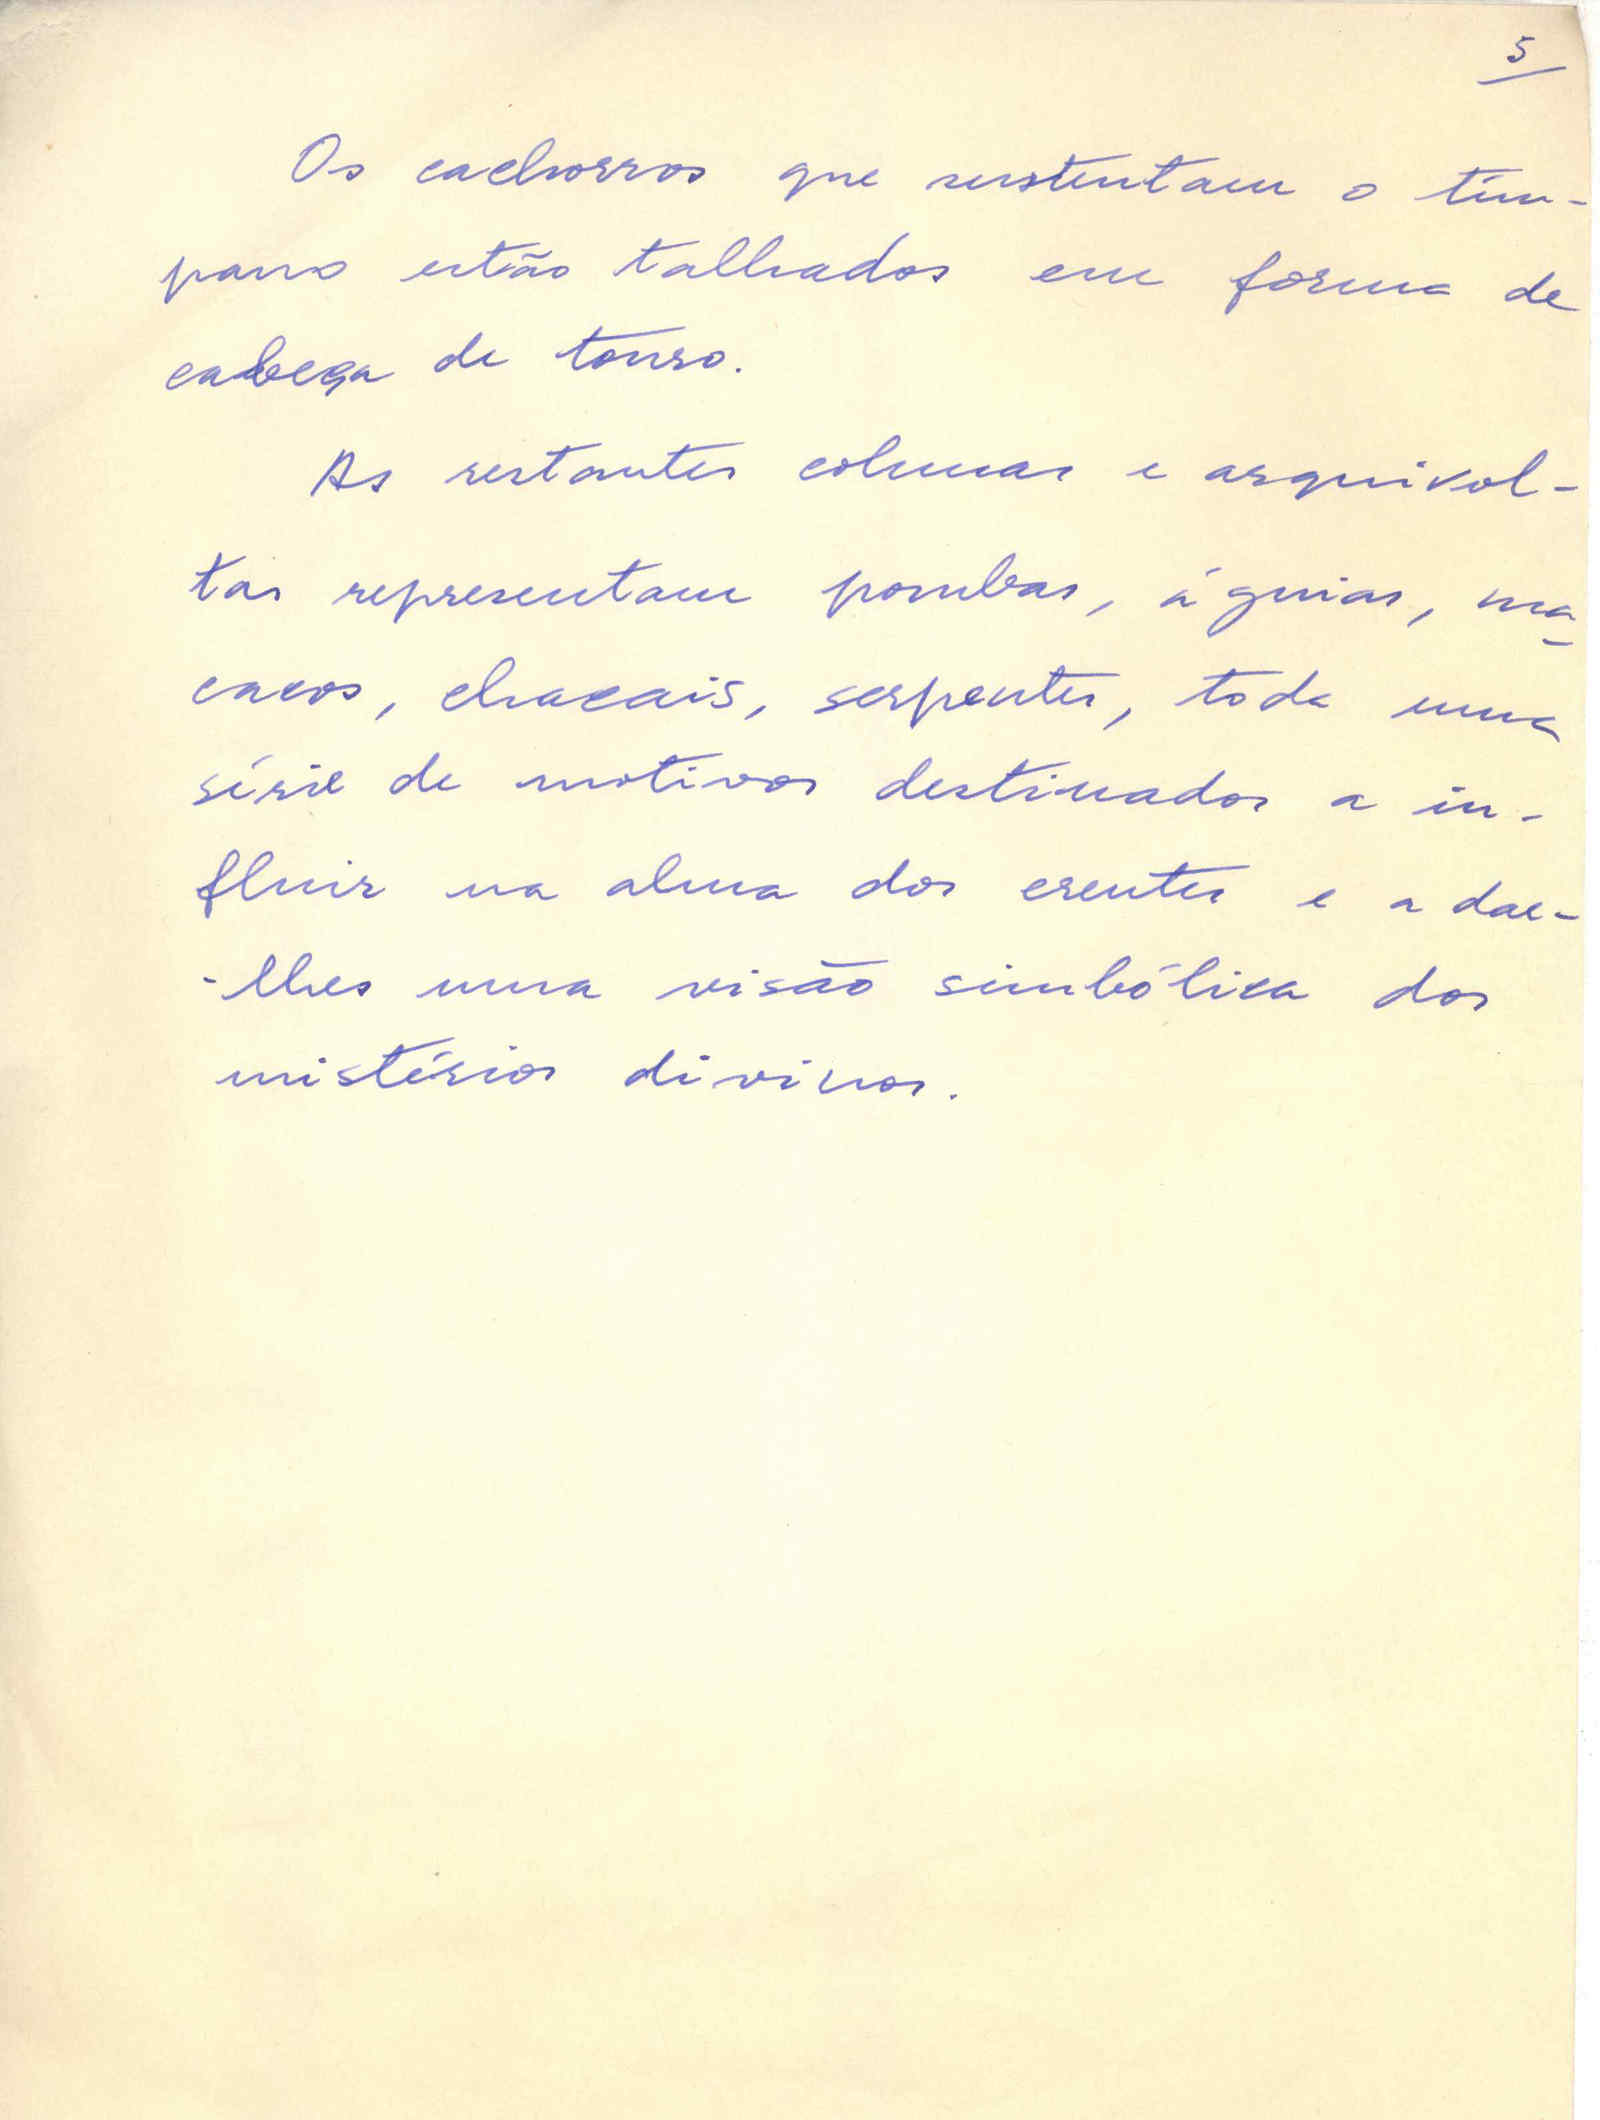 5
Os cachorros que sustentam o tím-
pano estão talhados em forma de
cabeça de touro.
As restantes colunas e arquivol-
tas representam pombas, águias, ma-
cacos, chacais, serpentes, toda uma
série de motivos destinados a in-
fluir na alma dos crentes e a dar-
-lhes uma visão simbólica dos
mistérios divinos.